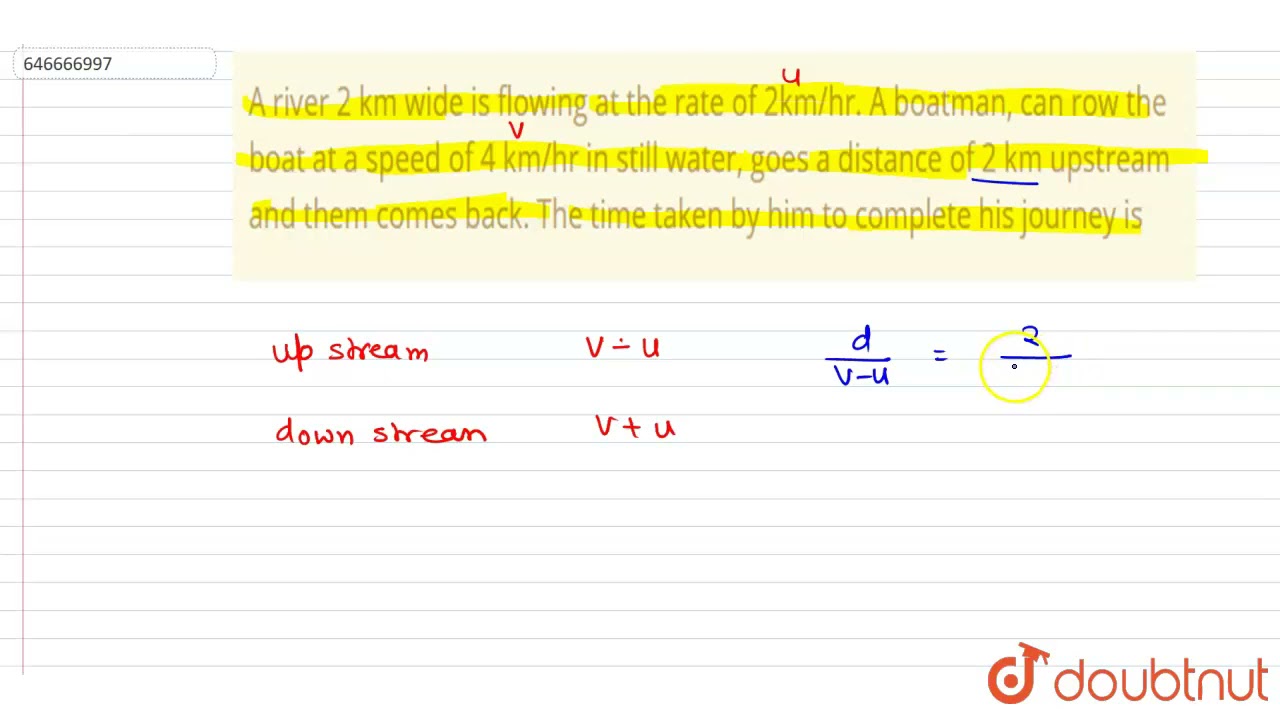 646666997
u
A river 2 km wide is flowing at the rate of 2km/hr. A boatman, can row the
v
boat at a speed of 4 km/hr in still water, goes a distance of 2 km upstream
and them comes back. The time taken by him to complete his journey is
up stream v - u d/v-u = 2
down stream v + u
doubtnut